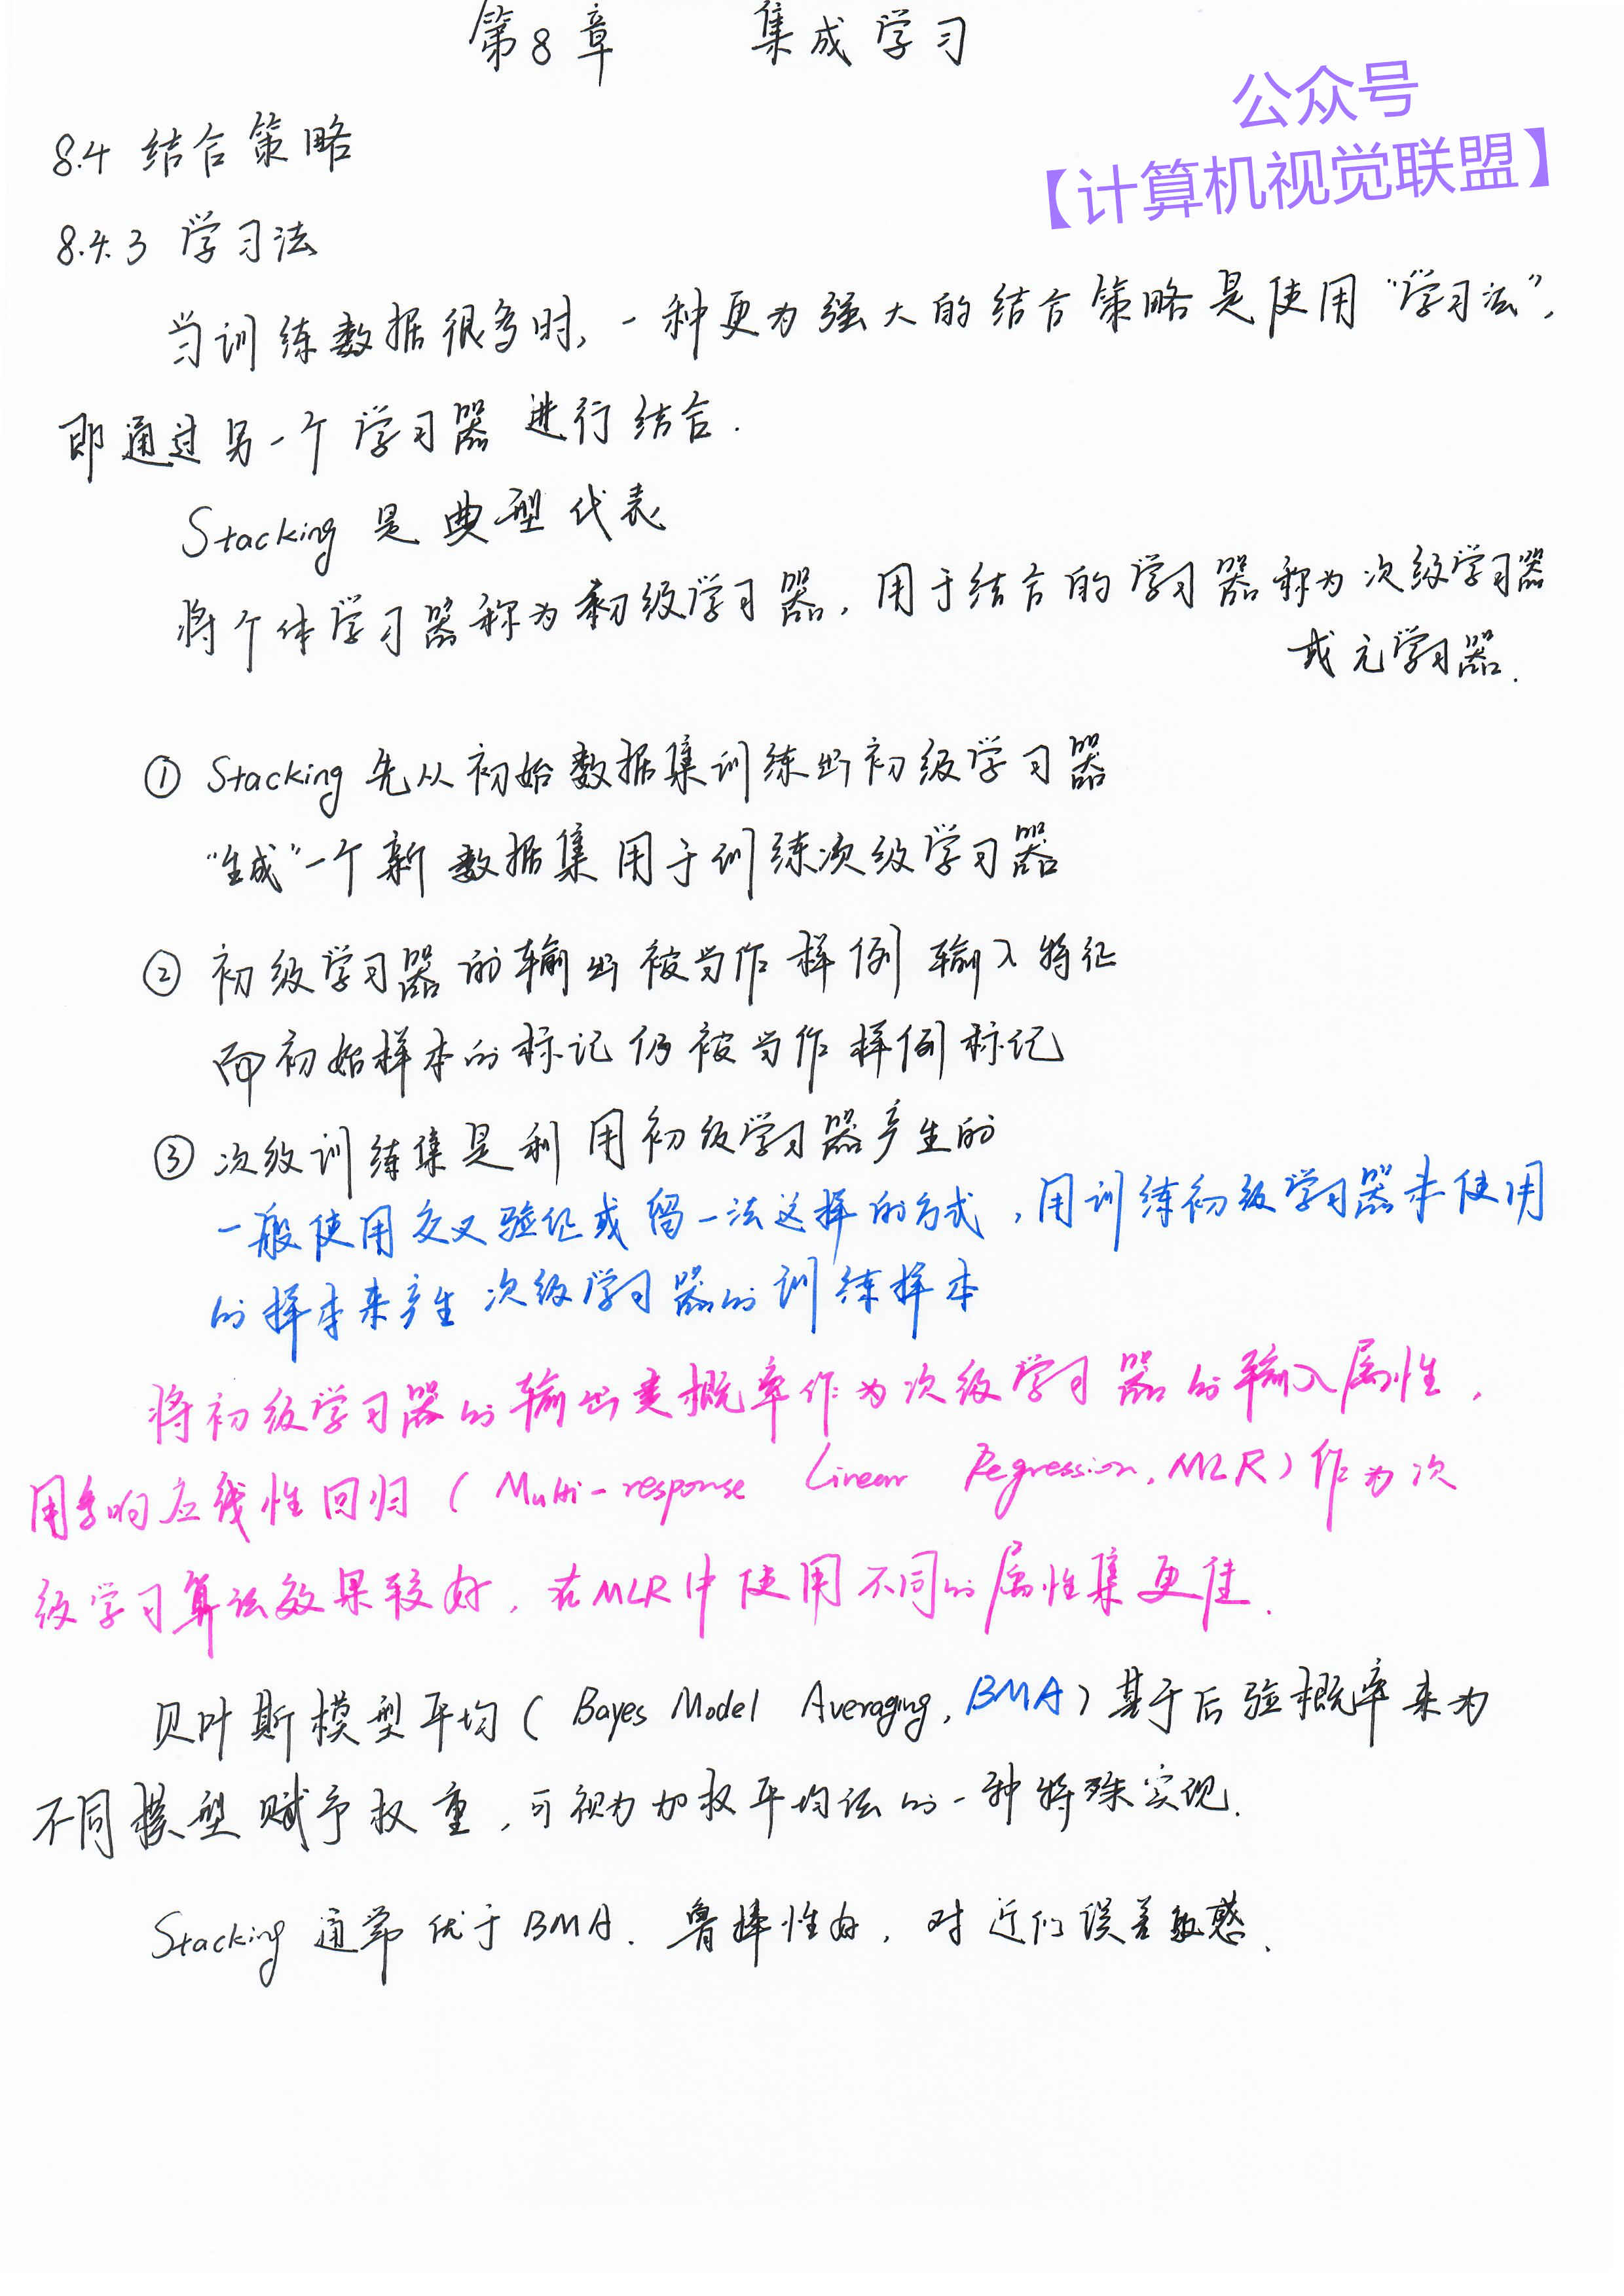 第8章 集成学习
公众号
【计算机视觉联盟】
8.4 结合策略
8.4.3 学习法
当训练数据很多时,一种更为强大的结合策略是使用“学习法”,
即通过另一个学习器 进行结合.
Stacking 是典型代表
将个体学习器称为初级学习器,用于结合的学习器称为次级学习器
或元学习器.
① Stacking先从初始数据集训练出初级学习器
“生成”一个新数据集用于训练次级学习器
② 初级学习器的输出被当作样例输入特征
而初始样本的标记仍被当作样例标记
③ 次级训练集是利用初级学习器产生的
一般使用交叉验证或留一法这样的方式,用训练初级学习器未使用
的样本来产生次级学习器的训练样本
将初级学习器的输出类概率作为次级学习器的输入属性,
用多响应线性回归(Multi-response Linear Regression,MLR)作为次
级学习算法效果较好,在MLR中使用不同的属性集更佳.
贝叶斯模型平均(Bayes Model Averaging,BMA)基于后验概率来为
不同模型赋予权重,可视为加权平均法的一种特殊实现.
Stacking 通常优于BMA.鲁棒性好,对近似误差敏感.